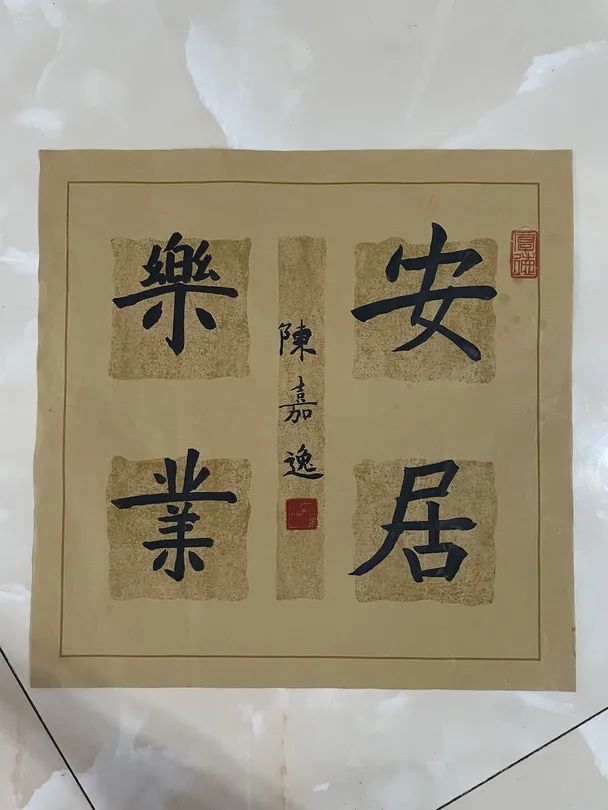 安居
樂業
陳嘉逸